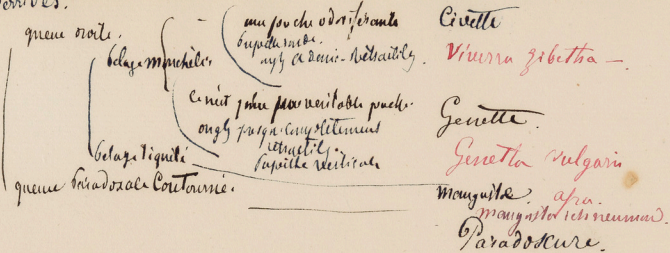 queue droite.
pelage moucheté
une poche odoriférante
pupille ronde.
ongl. à demi-rétractiles.
Civette
Viverra zibetha —
ce n'est plus une véritable poche.
ongl. presque complètement
rétractiles.
pupille verticale
Genette.
Genetta vulgaris
afra.
pelage tiqueté
Mangouste.
Mangusta ichneumon.
queue paradoxale contournée.
Paradoxure.